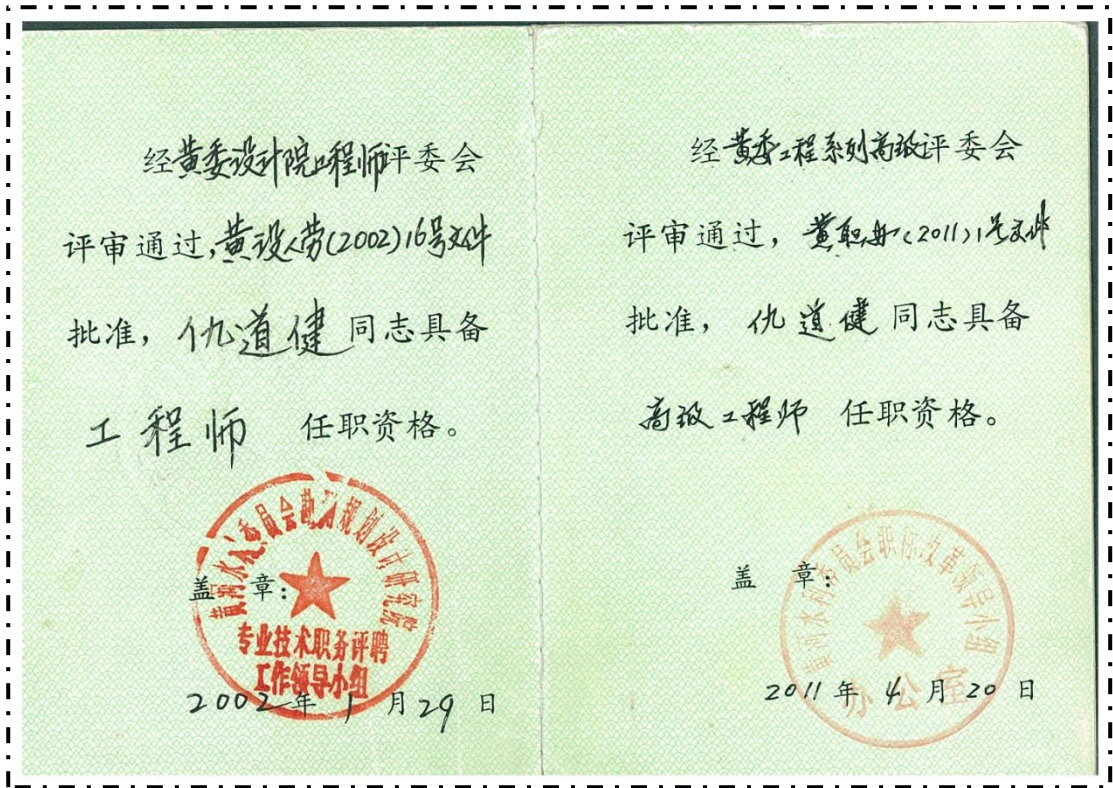 经黄委设计院工程师评委会
评审通过,黄设人劳(2002)16号文件
批准，仇道健同志具备
工程师 任职资格。
黄河水利委员会勘测规划设计研究院
盖 章：
专业技术职务评聘
工作领导小组
2002年1月29日
经黄委工程系列高级评委会
评审通过，黄职办(2011)1号文件
批准，仇道健同志具备
高级工程师 任职资格。
黄河水利委员会职称改革领导小组
盖 章：
办公室
2011年4月20日